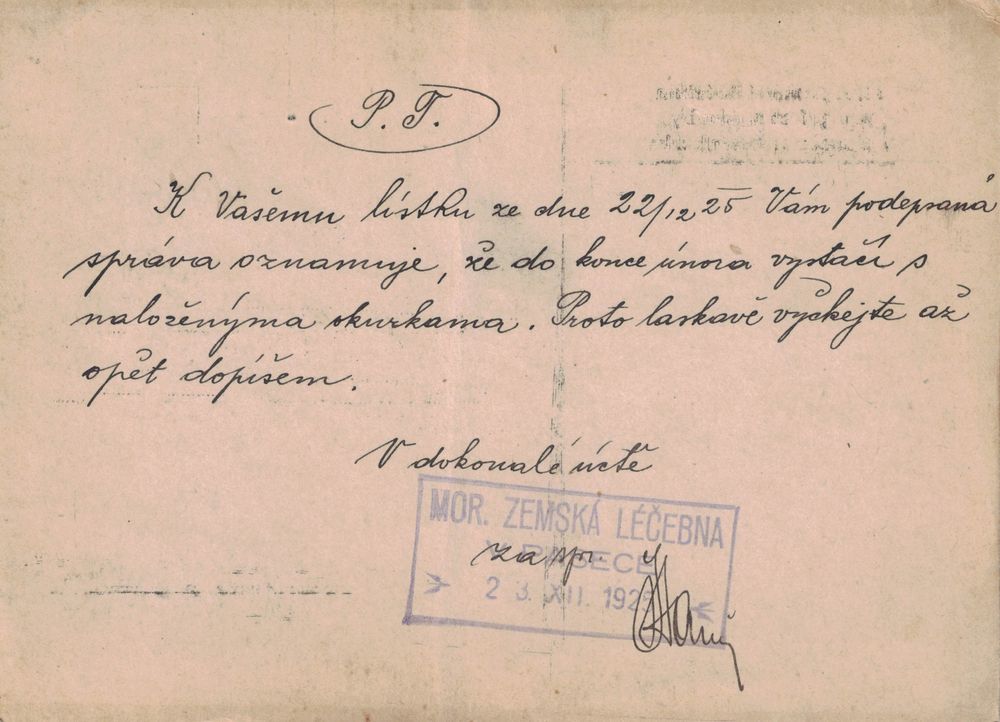 P. T.
K Vašemu lístku ze dne 22/12 25 Vám podepsaná
správa oznamuje, že do konce února vystačí s
naloženýma okurkama. Proto laskavě vyčkejte až
opět dopíšem.
V dokonalé úctě
MOR. ZEMSKÁ LÉČEBNA
V PASECE
za spr.
23. XII. 192